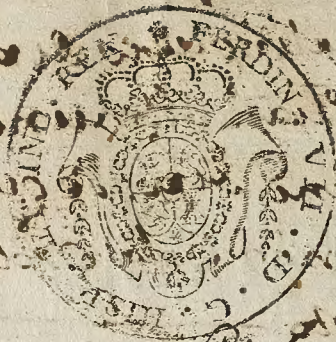 FERDIN VII · D · G · HISP IND REX